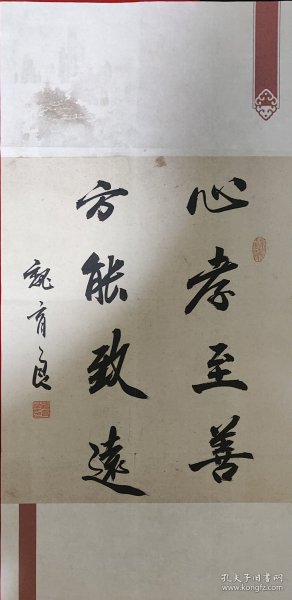 心孝至善
方能致遠
魏育良
孔夫子旧书网
www.kongfz.com